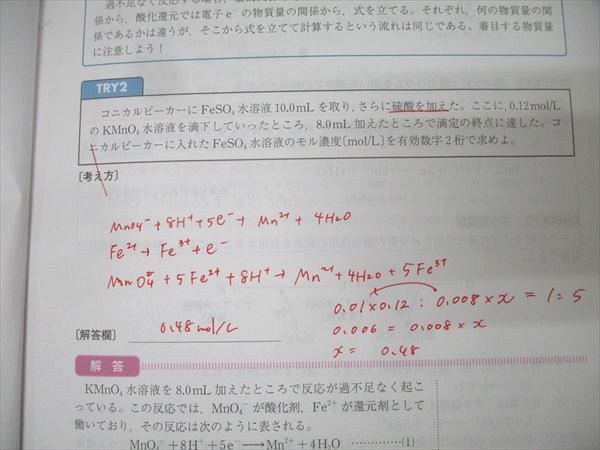 過不足なく反応する
係から,酸化還元では電子e⁻の物質量の関係から,式を立てる。それぞれ,何の物質量の関
係であるかは違うが,そこから式を立てて計算するという流れは同じである。着目する物質量
に注意しよう!
TRY2
コニカルビーカーにFeSO₄水溶液10.0mLを取り,さらに硫酸を加えた。ここに,0.12mol/L
のKMnO₄水溶液を滴下していったところ,8.0mL加えたところで滴定の終点に達した。コ
ニカルビーカーに入れたFeSO₄水溶液のモル濃度〔mol/L〕を有効数字2桁で求めよ。
〔考え方〕
MnO4⁻ + 8H⁺ + 5e⁻ → Mn²⁺ + 4H2O
Fe²⁺ → Fe³⁺ + e⁻
MnO4⁻ + 5Fe²⁺ + 8H⁺ → Mn²⁺ + 4H2O + 5Fe³⁺
0.01 × 0.12 : 0.008 × x = 1 : 5
0.006 = 0.008 × x
x = 0.48
〔解答欄〕 0.48 mol/L
解答
KMnO₄水溶液を8.0mL加えたところで反応が過不足なく起こ
っている。この反応では,MnO₄⁻が酸化剤,Fe²⁺が還元剤として
働いており,その反応は次のように表される。
MnO₄⁻+8H⁺+5e⁻→Mn²⁺+4H₂O …………(1)